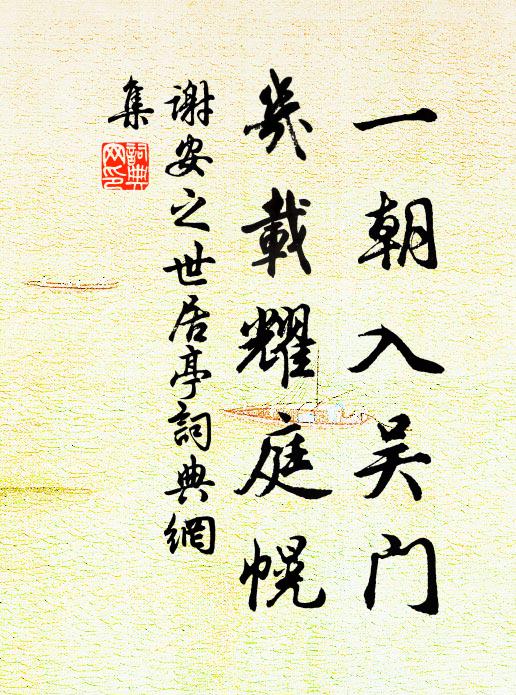 一朝入吴门
幾載耀庭幌
谢安之世居亭詞典網
集
詞典
网印